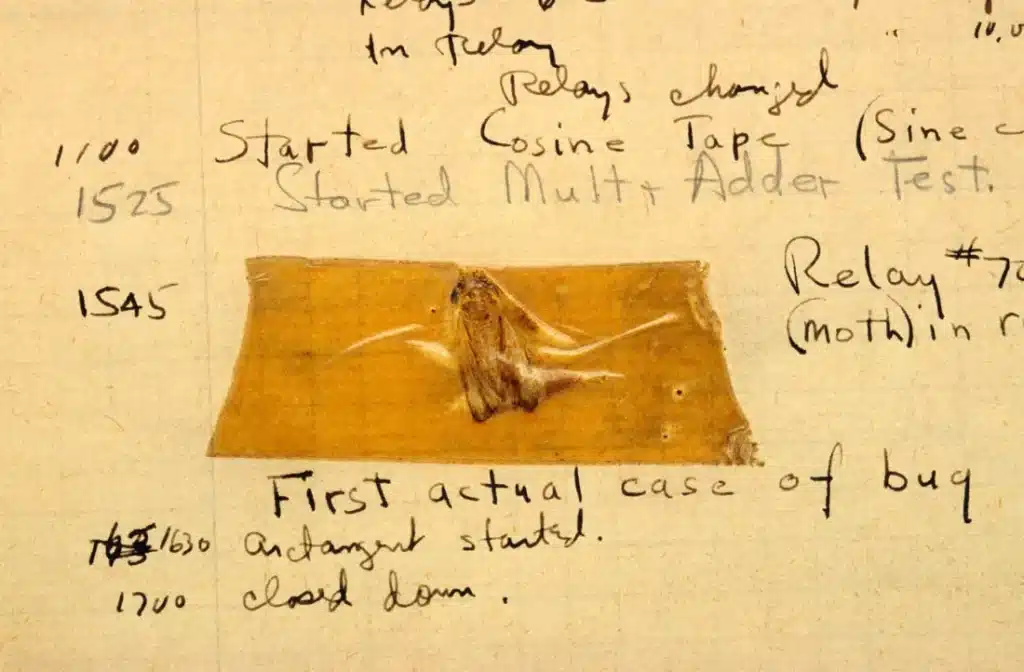 In Relay
Relays changed
1100 Started Cosine Tape (Sine c
1525 Started Mult + Adder Test.
1545 Relay #70
(moth) in r
First actual case of bug
1630 arctangent started.
1700 closed down.